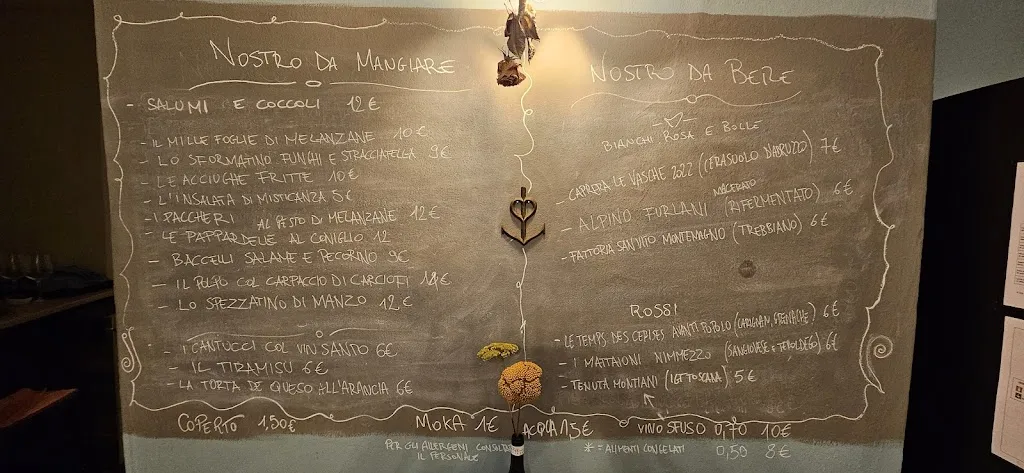 NOSTRO DA MANGIARE
- SALUMI E COCCOLI 12€
- IL MILLE FOGLIE DI MELANZANE 10€
- LO SFORMATINO FUNGHI E STRACCIATELLA 9€
- LE ACCIUGHE FRITTE 10€
- L'INSALATA DI MISTICANZA 5€
- I PACCHERI AL PESTO DI MELANZANE 12€
- LE PAPPARDELLE AL CONIGLIO 12
- BACCELLI SALAME E PECORINO 9€
- IL POLPO COL CARPACCIO DI CARCIOFI
- LO SPEZZATINO DI MANZO 12€
- I CANTUCCI COL VIN SANTO 6€
- IL TIRAMISU 6€
- LA TORTA DE QUESO ALL'ARANCIA 6€
NOSTRO DA BERE
BIANCHI ROSA E BOLLE
- CAPRERA LE VASCHE 2022 (CERASUOLO D'ABRUZZO) 7€
MACERATO
- ALPINO FURLANI (RIFERMENTATO) 6€
- FATTORIA SAN VITO MONTEMAGNO (TREBBIANO) 6€
ROSSI
- LE TEMPS DES CERISES AVANTI POPOLO (CARIGNAN, GRENACHE) 6€
- I MATTAIONI NIMMEZZO (SANGIOVESE E TEROLDEGO) 6€
- TENUTA MONTIANI (IGT TOSCANA) 5€
COPERTO 1,50€ MOKA 1€ ACQUA 1,5€ VINO SFUSO 0,70 10€
0,50 8€
PER GLI ALLERGENI CONSULTARE
IL PERSONALE
* = ALIMENTI CONGELATI